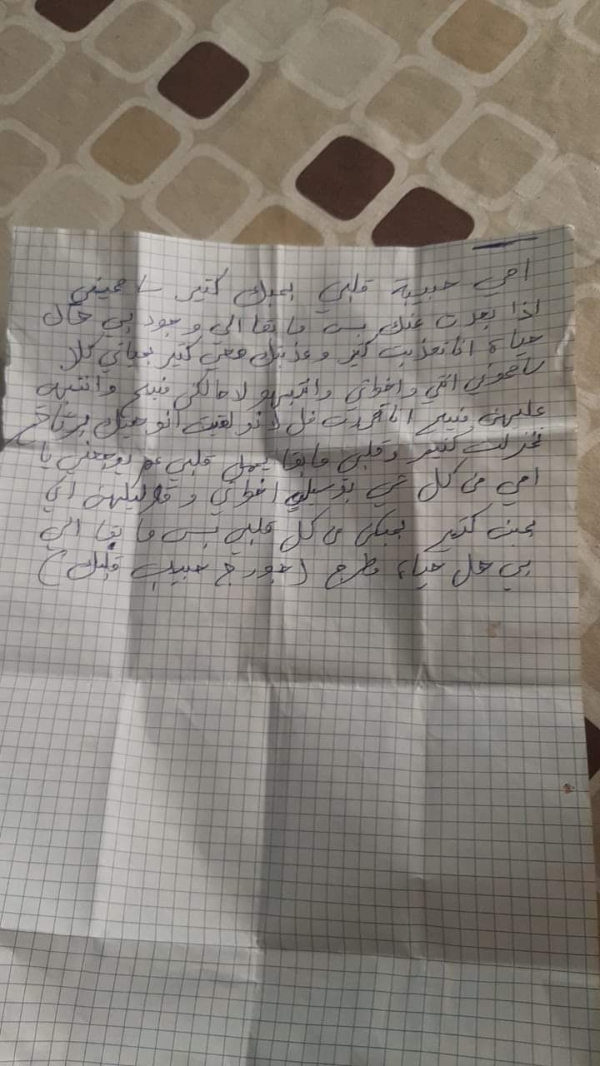 امي حبيبة قلبي بحبك كتير سامحيني
اذا بعدت عنك بس ما بقا الي وجود بي حال
حياة انا تعذبت كتير وعذبتك معي كتير بحياتي كلا
سامحوني امي واخواتي وانتبهو لا حالكن منيح وانتبه
عليهن منيح انا قررت فل لانو لقيت انو هيك برتاح
كتير وقلبي ما بقا يحمل قلبي عم يوجعني يا
امي من كل شي بوسيلي اخواتي وقوليلهن اني
بحبن كتير بحبكن من كل قلبي بس ما بقا الي
بي حل حياة مطرح (جورج حبيب قلبك)